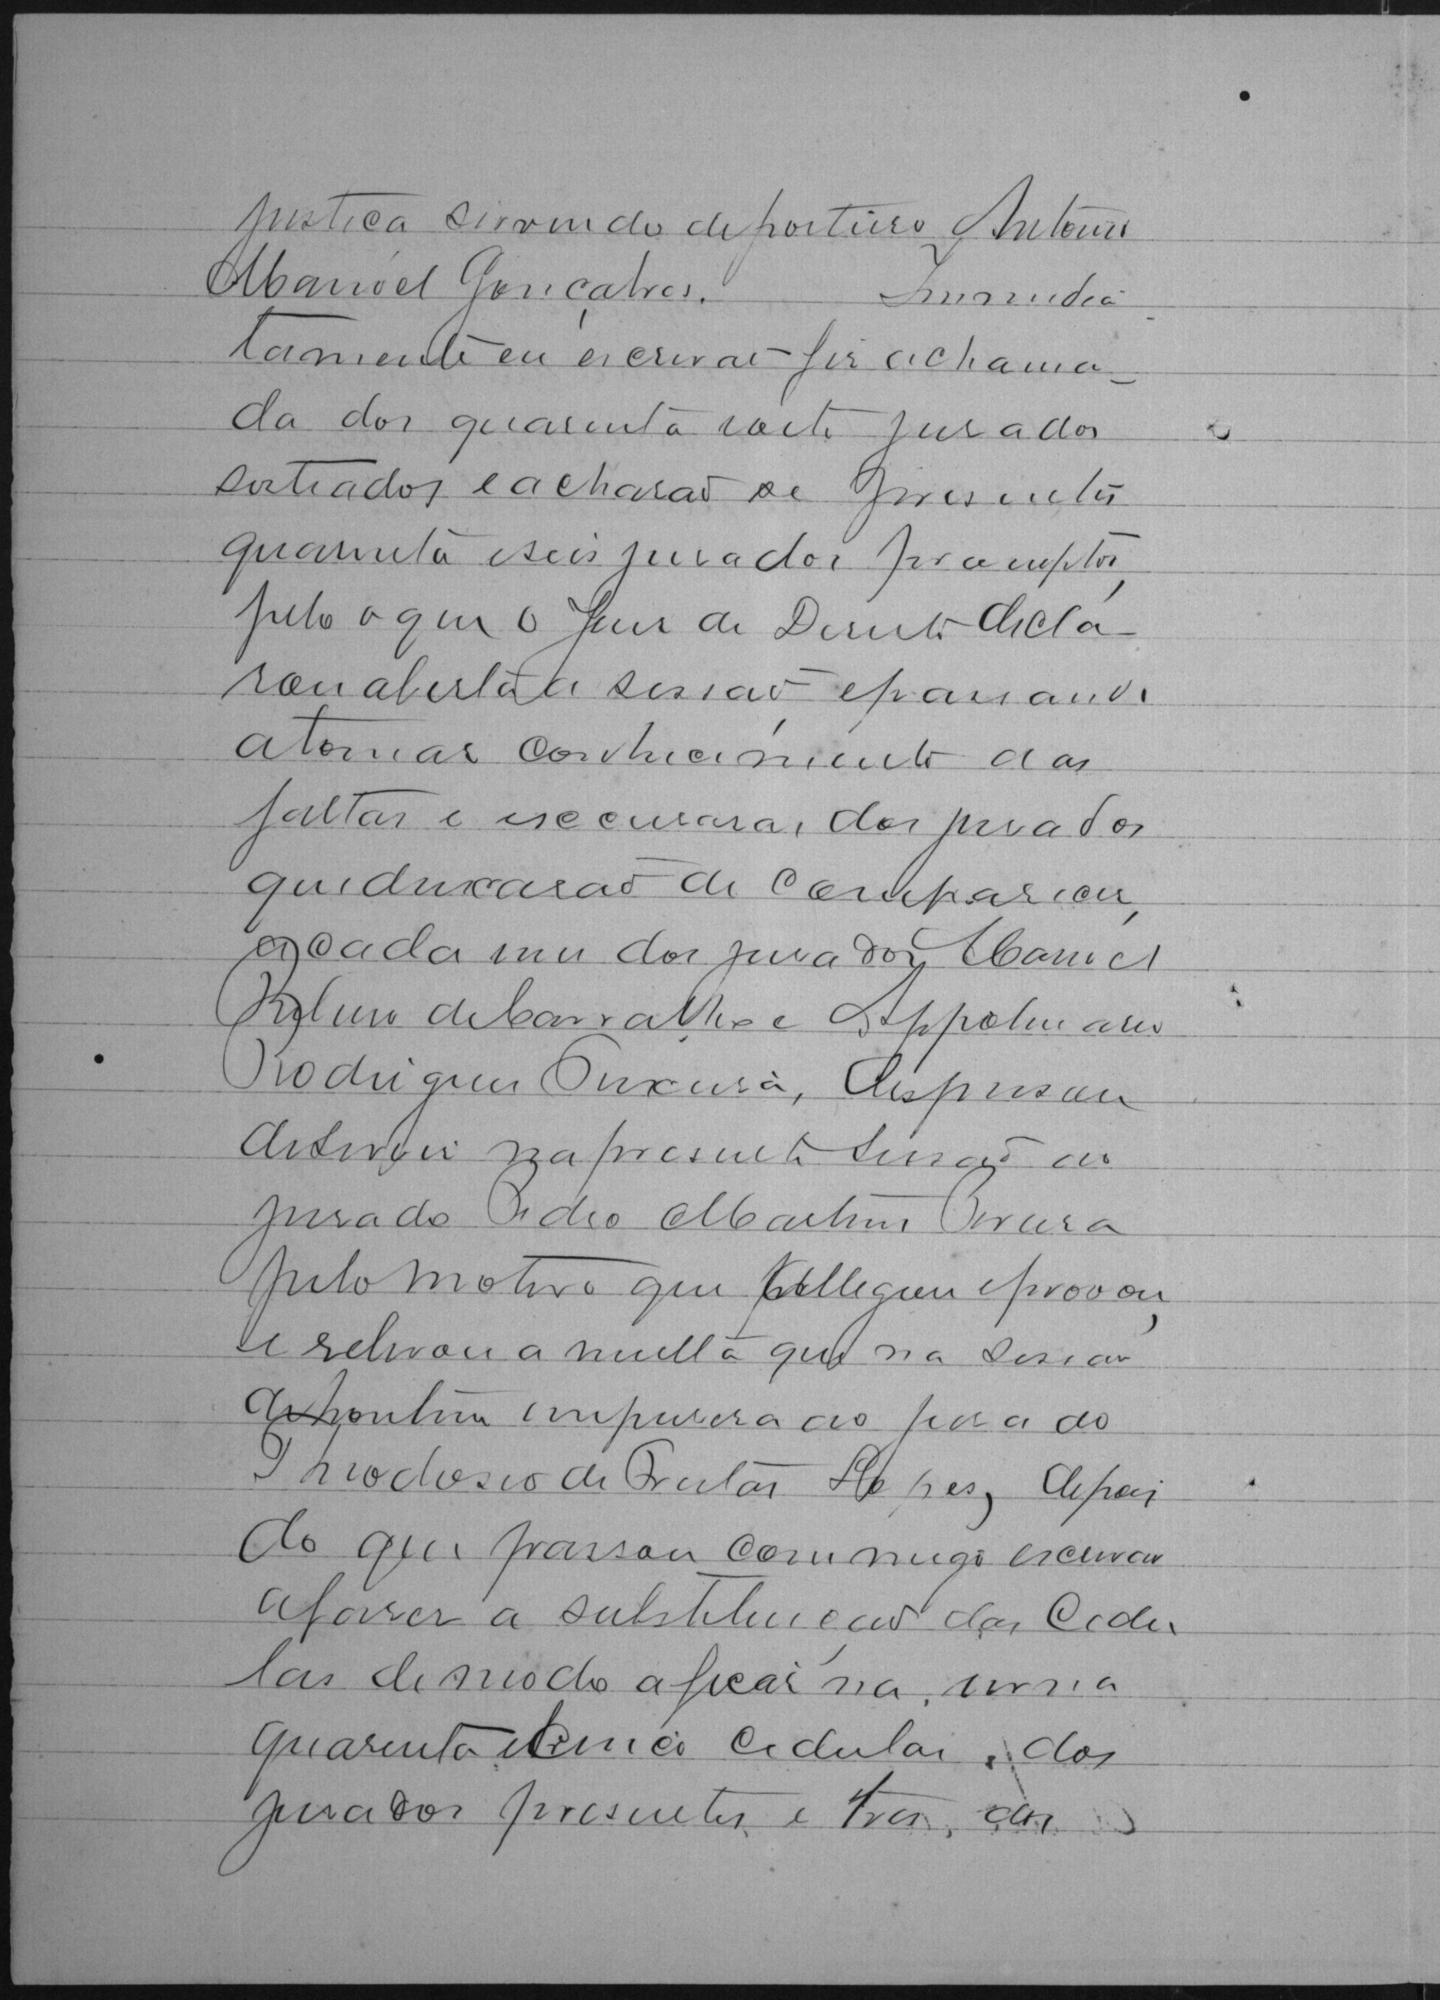 justiça servindo de porteiro Antonio
Manoel Gonçalves. Immedia
tamente eu escrivaõ fiz a chama-
da dos quarenta e oito jurados
sorteados e acharaõ se presentes
quarenta e seis jurados promptos,
pelo o que o Juiz de Direito decla-
rou aberta a sessaõ e passando
a tomar conhecimento das
faltas e escusas, dos jurados
que deixaraõ de comparecer,
a cada um dos jurados Manoel
de Carvalho e Appolinario
Rodrigues Teixeira, dispensou
de servir na presente sessaõ ao
jurado Pedro Martins Pereira
pelo motivo que allegou e provou,
e relevou a multa que na sessaõ
de hontem impusera ao jurado
Theodosio de Freitas Lopes, depois
do que passou commigo escrivaõ
a fazer a substituiçaõ das cedu
las de modo a ficar na urna
quarenta e cinco cedulas, dos
jurados presentes e tres, dos